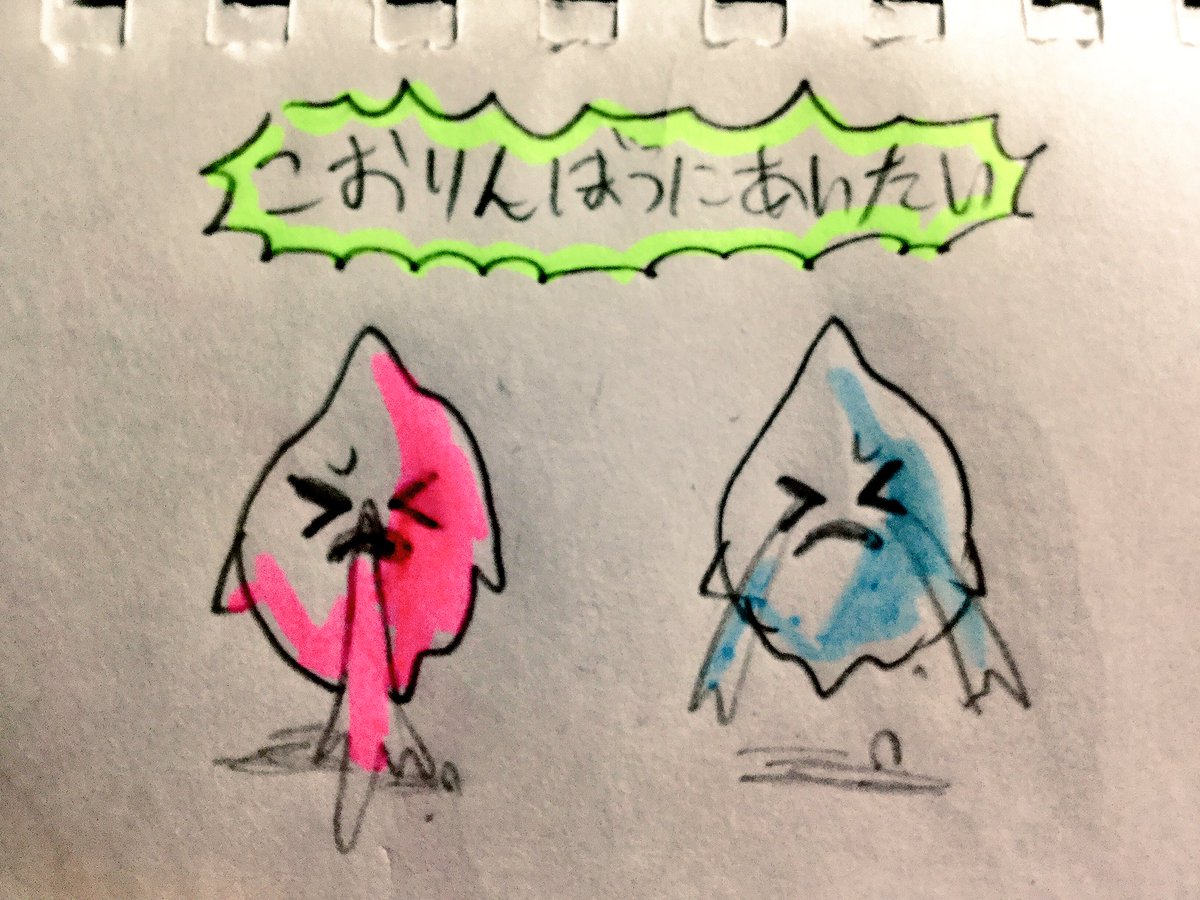 こおりんぼうにあいたい